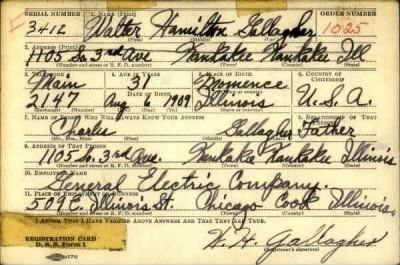 SERIAL NUMBER 1. NAME (Print) ORDER NUMBER
3412 Walter Hamilton Gallagher 1025
2. ADDRESS (Print)
1105 So. 3rd Ave Kankakee Kankakee Ill
(Number and street or R. F. D. number) (Town) (County) (State)
3. TELEPHONE 4. AGE IN YEARS 5. PLACE OF BIRTH 6. COUNTRY OF CITIZENSHIP
Main 31 Momence
DATE OF BIRTH
2147 Aug 6 1909 Illinois U.S.A.
7. NAME OF PERSON WHO WILL ALWAYS KNOW YOUR ADDRESS 8. RELATIONSHIP OF THAT PERSON
Charles Gallagher Father
9. ADDRESS OF THAT PERSON
1105 So. 3rd Ave. Kankakee Kankakee Illinois
(Number and street or R. F. D. number) (Town) (County) (State)
10. EMPLOYER'S NAME
General Electric Company
11. PLACE OF EMPLOYMENT OR BUSINESS
509 E. Illinois St. Chicago Cook Illinois
(Number and street or R. F. D. number) (Town) (County) (State)
I AFFIRM THAT I HAVE VERIFIED ABOVE ANSWERS AND THAT THEY ARE TRUE.
REGISTRATION CARD
D. S. S. Form 1 W. H. Gallagher
(Registrant's signature)